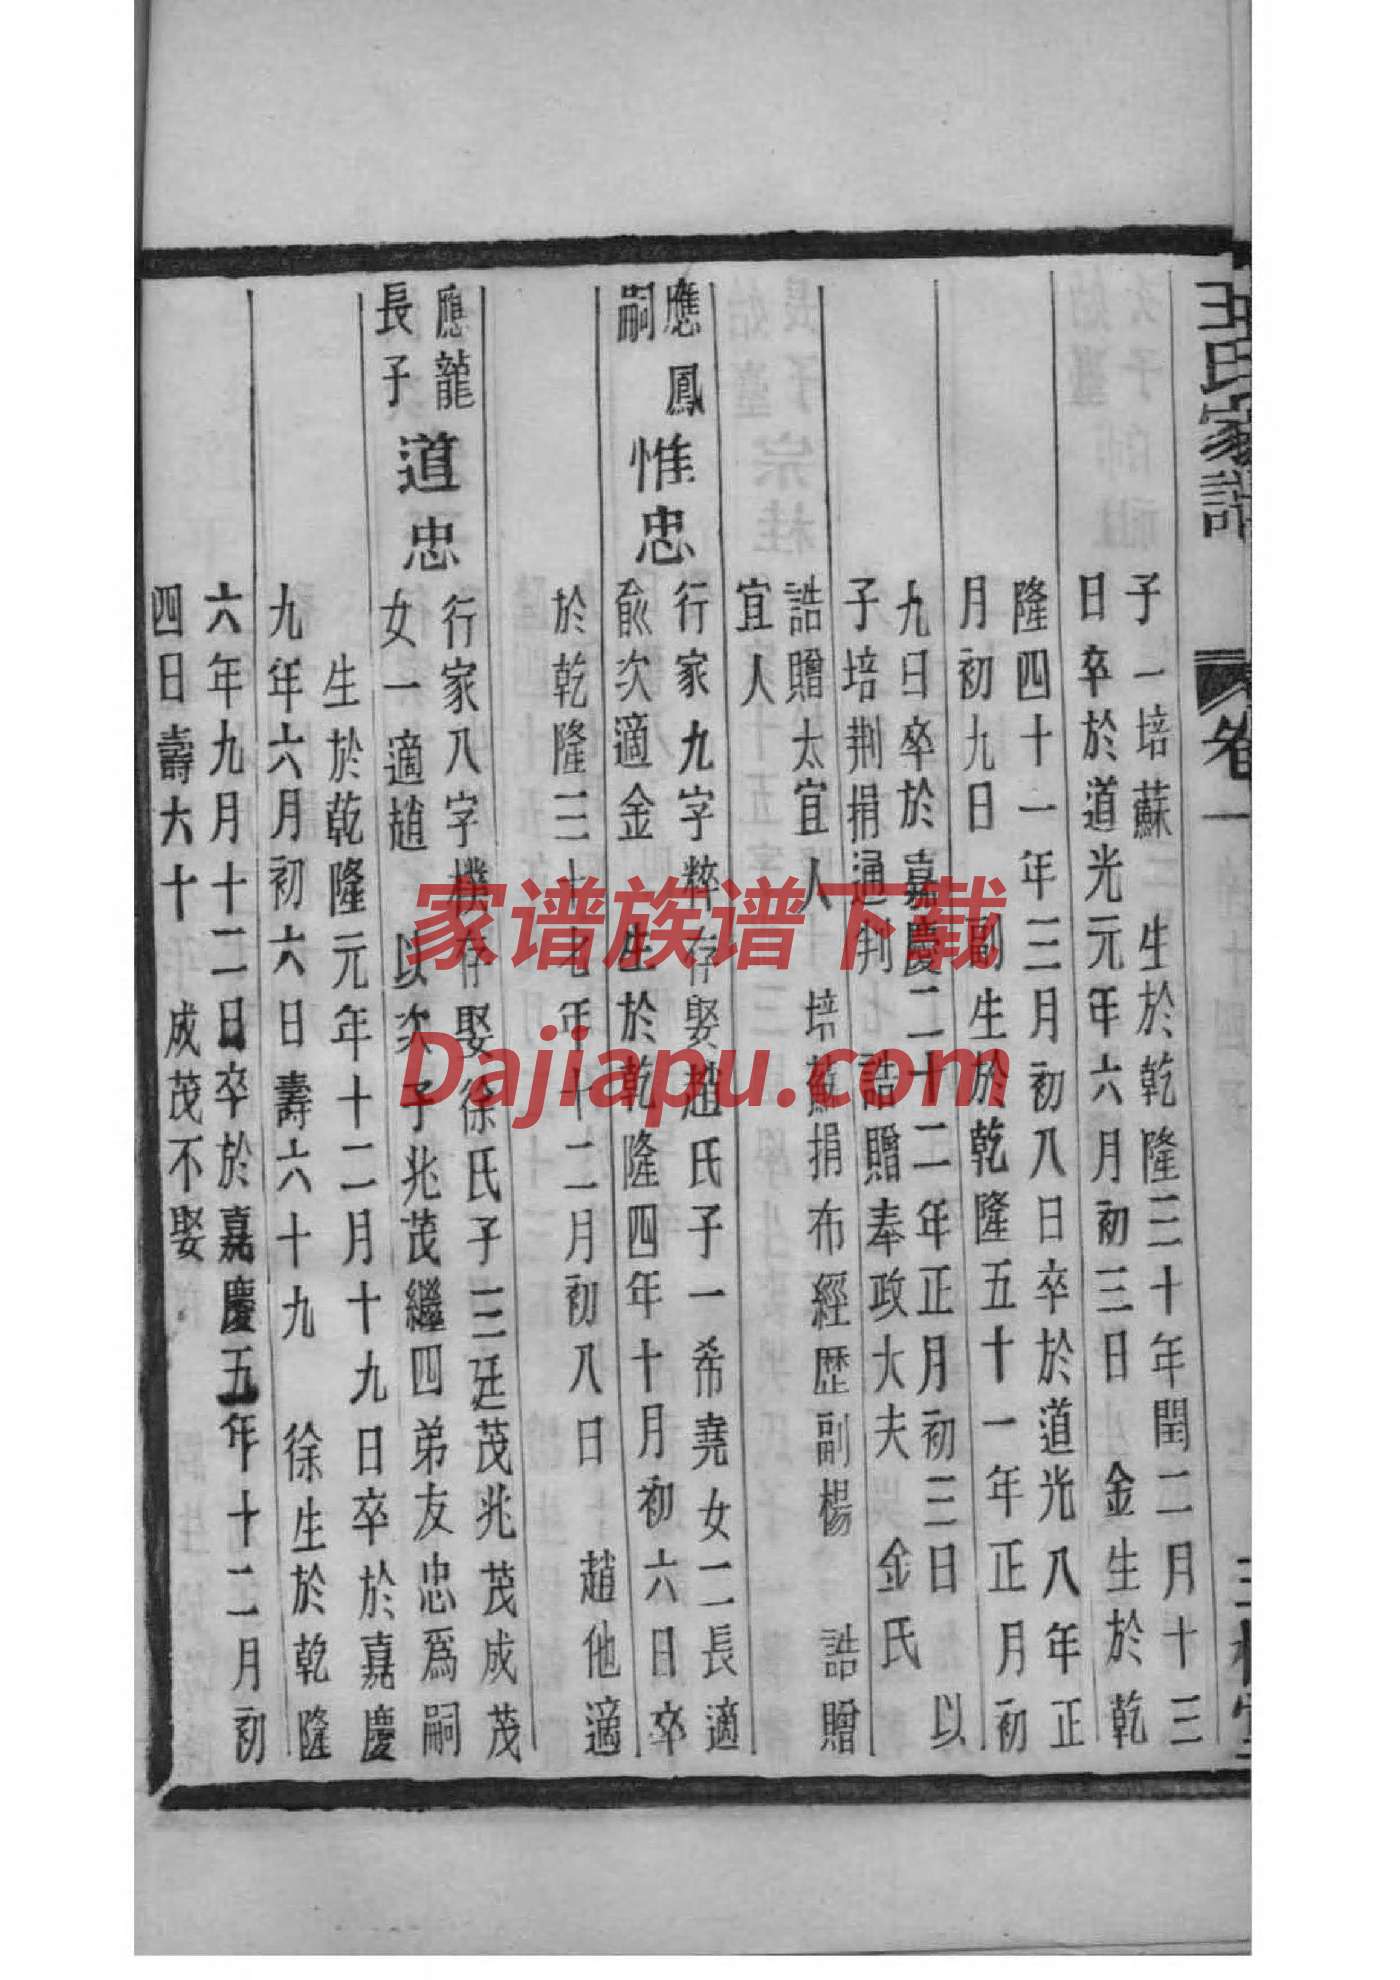 王氏家譜
卷一
子一培蘇 生於乾隆三十年閏二月十三
日卒於道光元年六月初三日 金生於乾
隆四十一年三月初八日卒於道光八年正
月初九日 副生於乾隆五十一年正月初
九日卒於嘉慶二十二年正月初三日 以
子培荆捐通判 誥贈奉政大夫 金氏
誥贈太宜人 培蘇捐布經歷副楊 誥贈
宜人
應鳳
嗣
惟忠
行家九字粹存娶趙氏子一希堯女二長適
俞次適金 生於乾隆四年十月初六日卒
於乾隆三十七年十二月初八日 趙他適
應龍
長子
道忠
行家八字樸存娶徐氏子三廷茂兆茂成茂
女一適趙 以次子兆茂繼四弟友忠爲嗣
生於乾隆元年十二月十九日卒於嘉慶
九年六月初六日壽六十九 徐生於乾隆
六年九月十二日卒於嘉慶五年十二月初
四日壽六十 成茂不娶
家谱族谱下载
Dajiapu.com